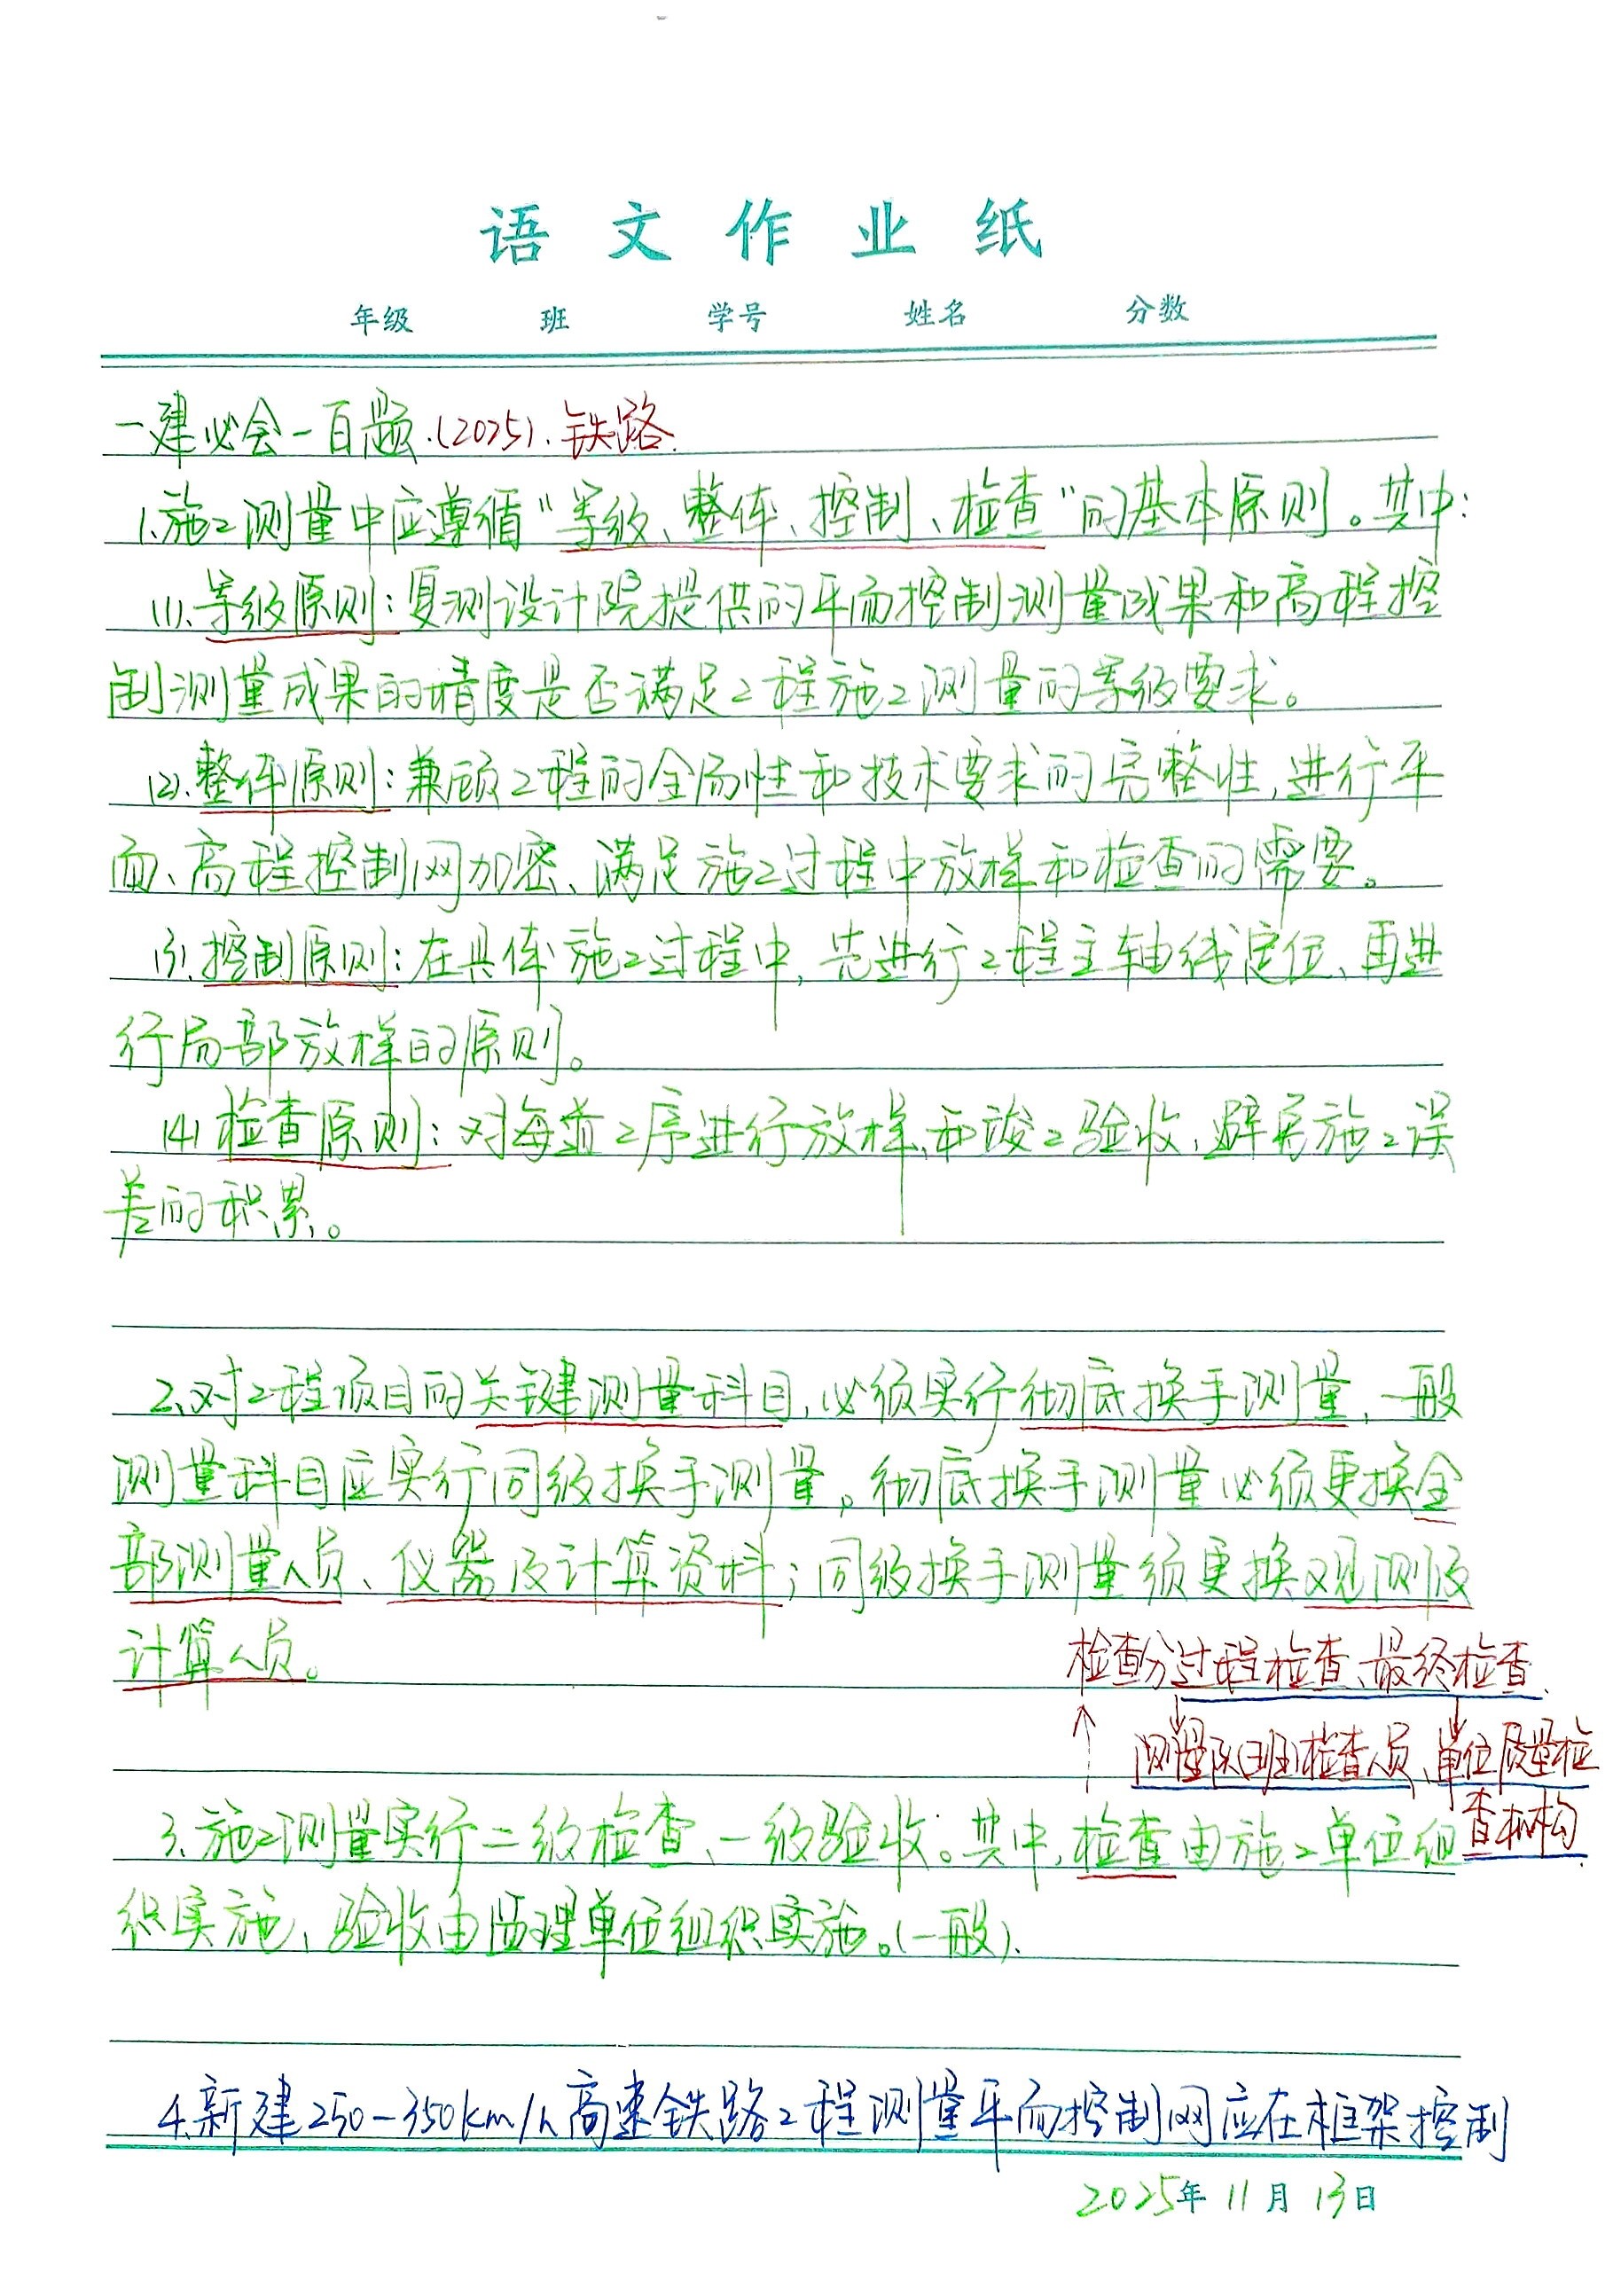 语文作业纸
年级 班 学号 姓名 分数
一建必会一百题.(2025).铁路.
1.施工测量中应遵循"等级、整体、控制、检查"的基本原则。其中:
(1).等级原则:复测设计院提供的平面控制测量成果和高程控
制测量成果的精度是否满足工程施工测量的等级要求。
(2).整体原则:兼顾工程的全局性和技术要求的完整性,进行平
面、高程控制网加密、满足施工过程中放样和检查的需要。
(3).控制原则:在具体施工过程中,先进行工程主轴线定位、再进
行局部放样的原则。
(4)检查原则:对每道工序进行放样和竣工验收,避免施工误
差的积累。
2.对工程项目的关键测量科目,必须实行彻底换手测量,一般
测量科目应实行同级换手测量。彻底换手测量必须更换全
部测量人员、仪器及计算资料;同级换手测量须更换观测及
计算人员。
检查分过程检查、最终检查.
测量队(班)检查人员、单位质量检
查机构
3.施工测量实行二级检查、一级验收。其中,检查由施工单位组
织实施,验收由监理单位组织实施。(一般).
4.新建250-350km/h高速铁路工程测量平面控制网应在框架控制
2025年11月13日